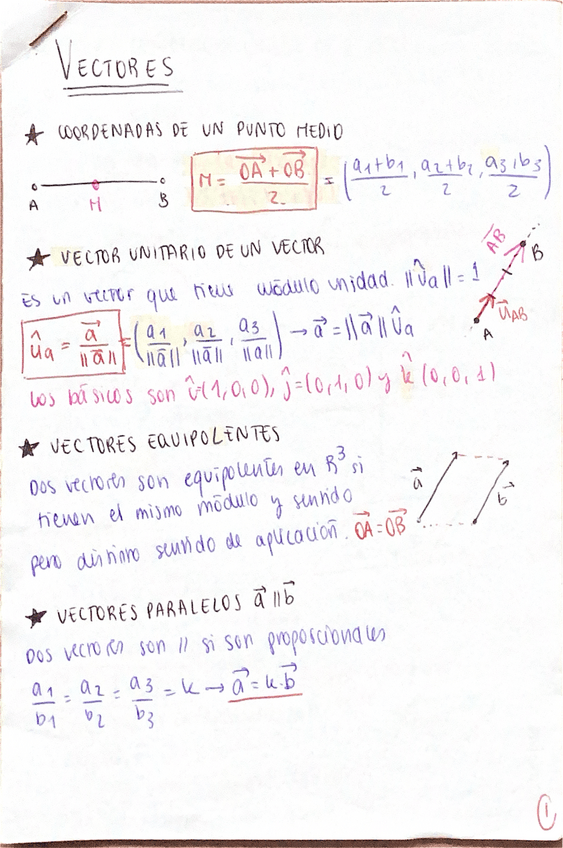 VECTORES
★ COORDENADAS DE UN PUNTO MEDIO
A M B
M = (OA→ + OB→)/2 = ((a1+b1)/2, (a2+b2)/2, (a3+b3)/2)
★ VECTOR UNITARIO DE UN VECTOR
Es un vector que tiene módulo unidad. ||ûa|| = 1
ûa = a→/||a→|| = (a1/||a→||, a2/||a→||, a3/||a||) → a→ = ||a→|| ûa
AB→ B
u→AB
A
Los básicos son î(1,0,0), ĵ=(0,1,0) y k̂ (0,0,1)
★ VECTORES EQUIPOLENTES
Dos vectores son equipolentes en R³ si
tienen el mismo módulo y sentido
pero distinto sentido de aplicación. OA→ = OB→
a→ b→
★ VECTORES PARALELOS a→ || b→
Dos vectores son // si son proporcionales
a1/b1 = a2/b2 = a3/b3 = k → a→ = k·b→
1